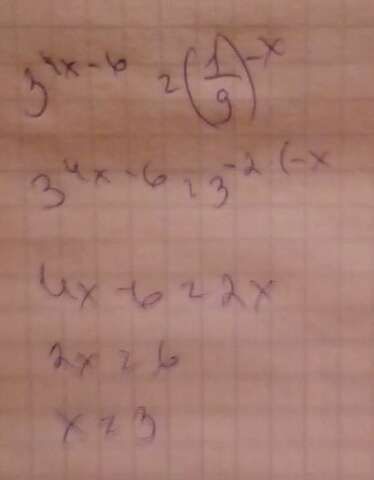 3^{4x-6} = (1/9)^{-x}
3^{4x-6} = 3^{-2·(-x}
4x-6=2x
2x=6
x=3